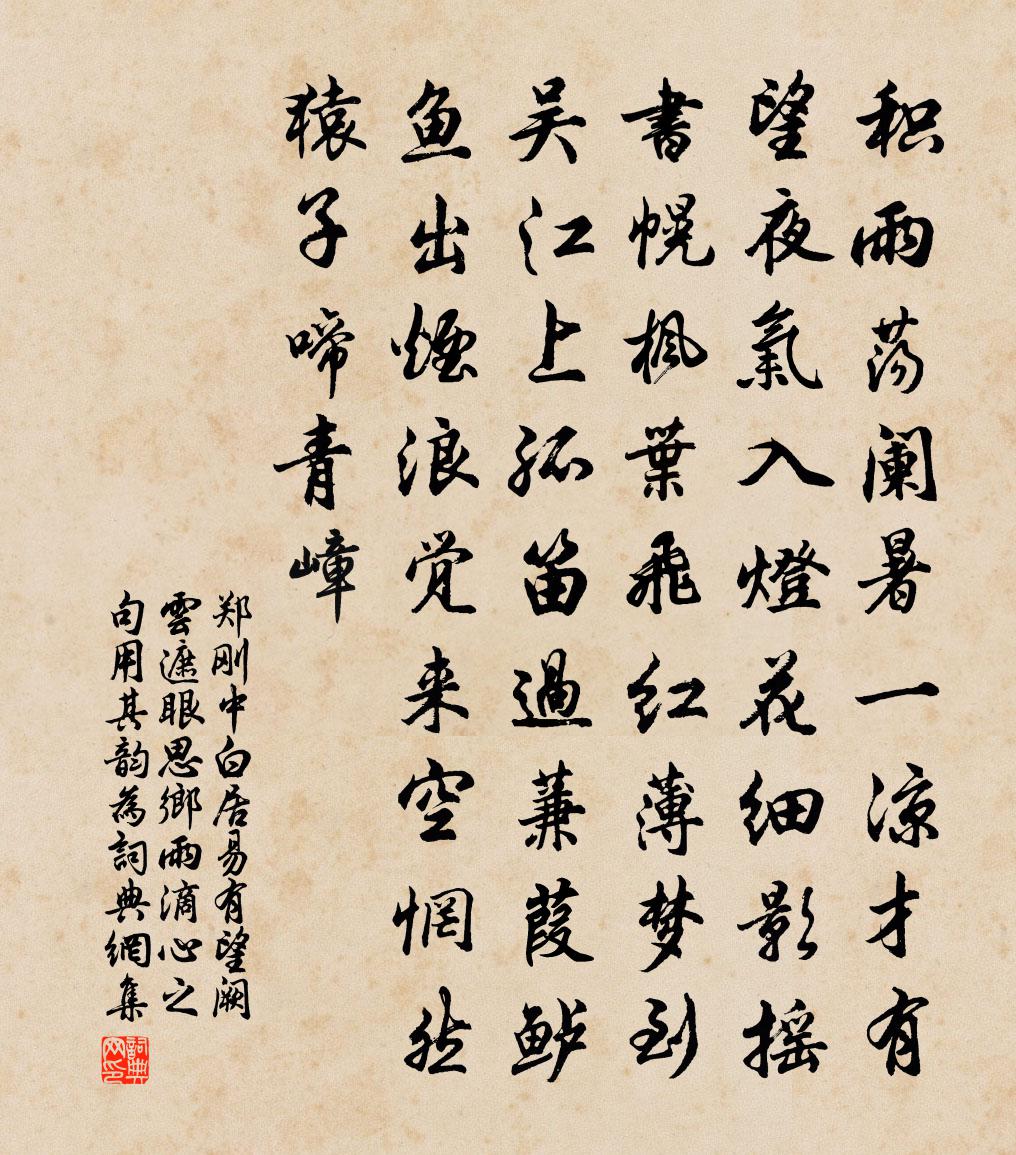 积雨荡阑暑一凉才有
望夜氣入燈花细影摇
書幌枫葉飛红薄梦到
吴江上孤笛過蒹葭鲈
鱼出烟浪觉来空惘然
猿子啼青嶂
郑刚中白居易有望阙
雲遮眼思鄉雨滴心之
句用其韵為詞典網集
詞典
网印